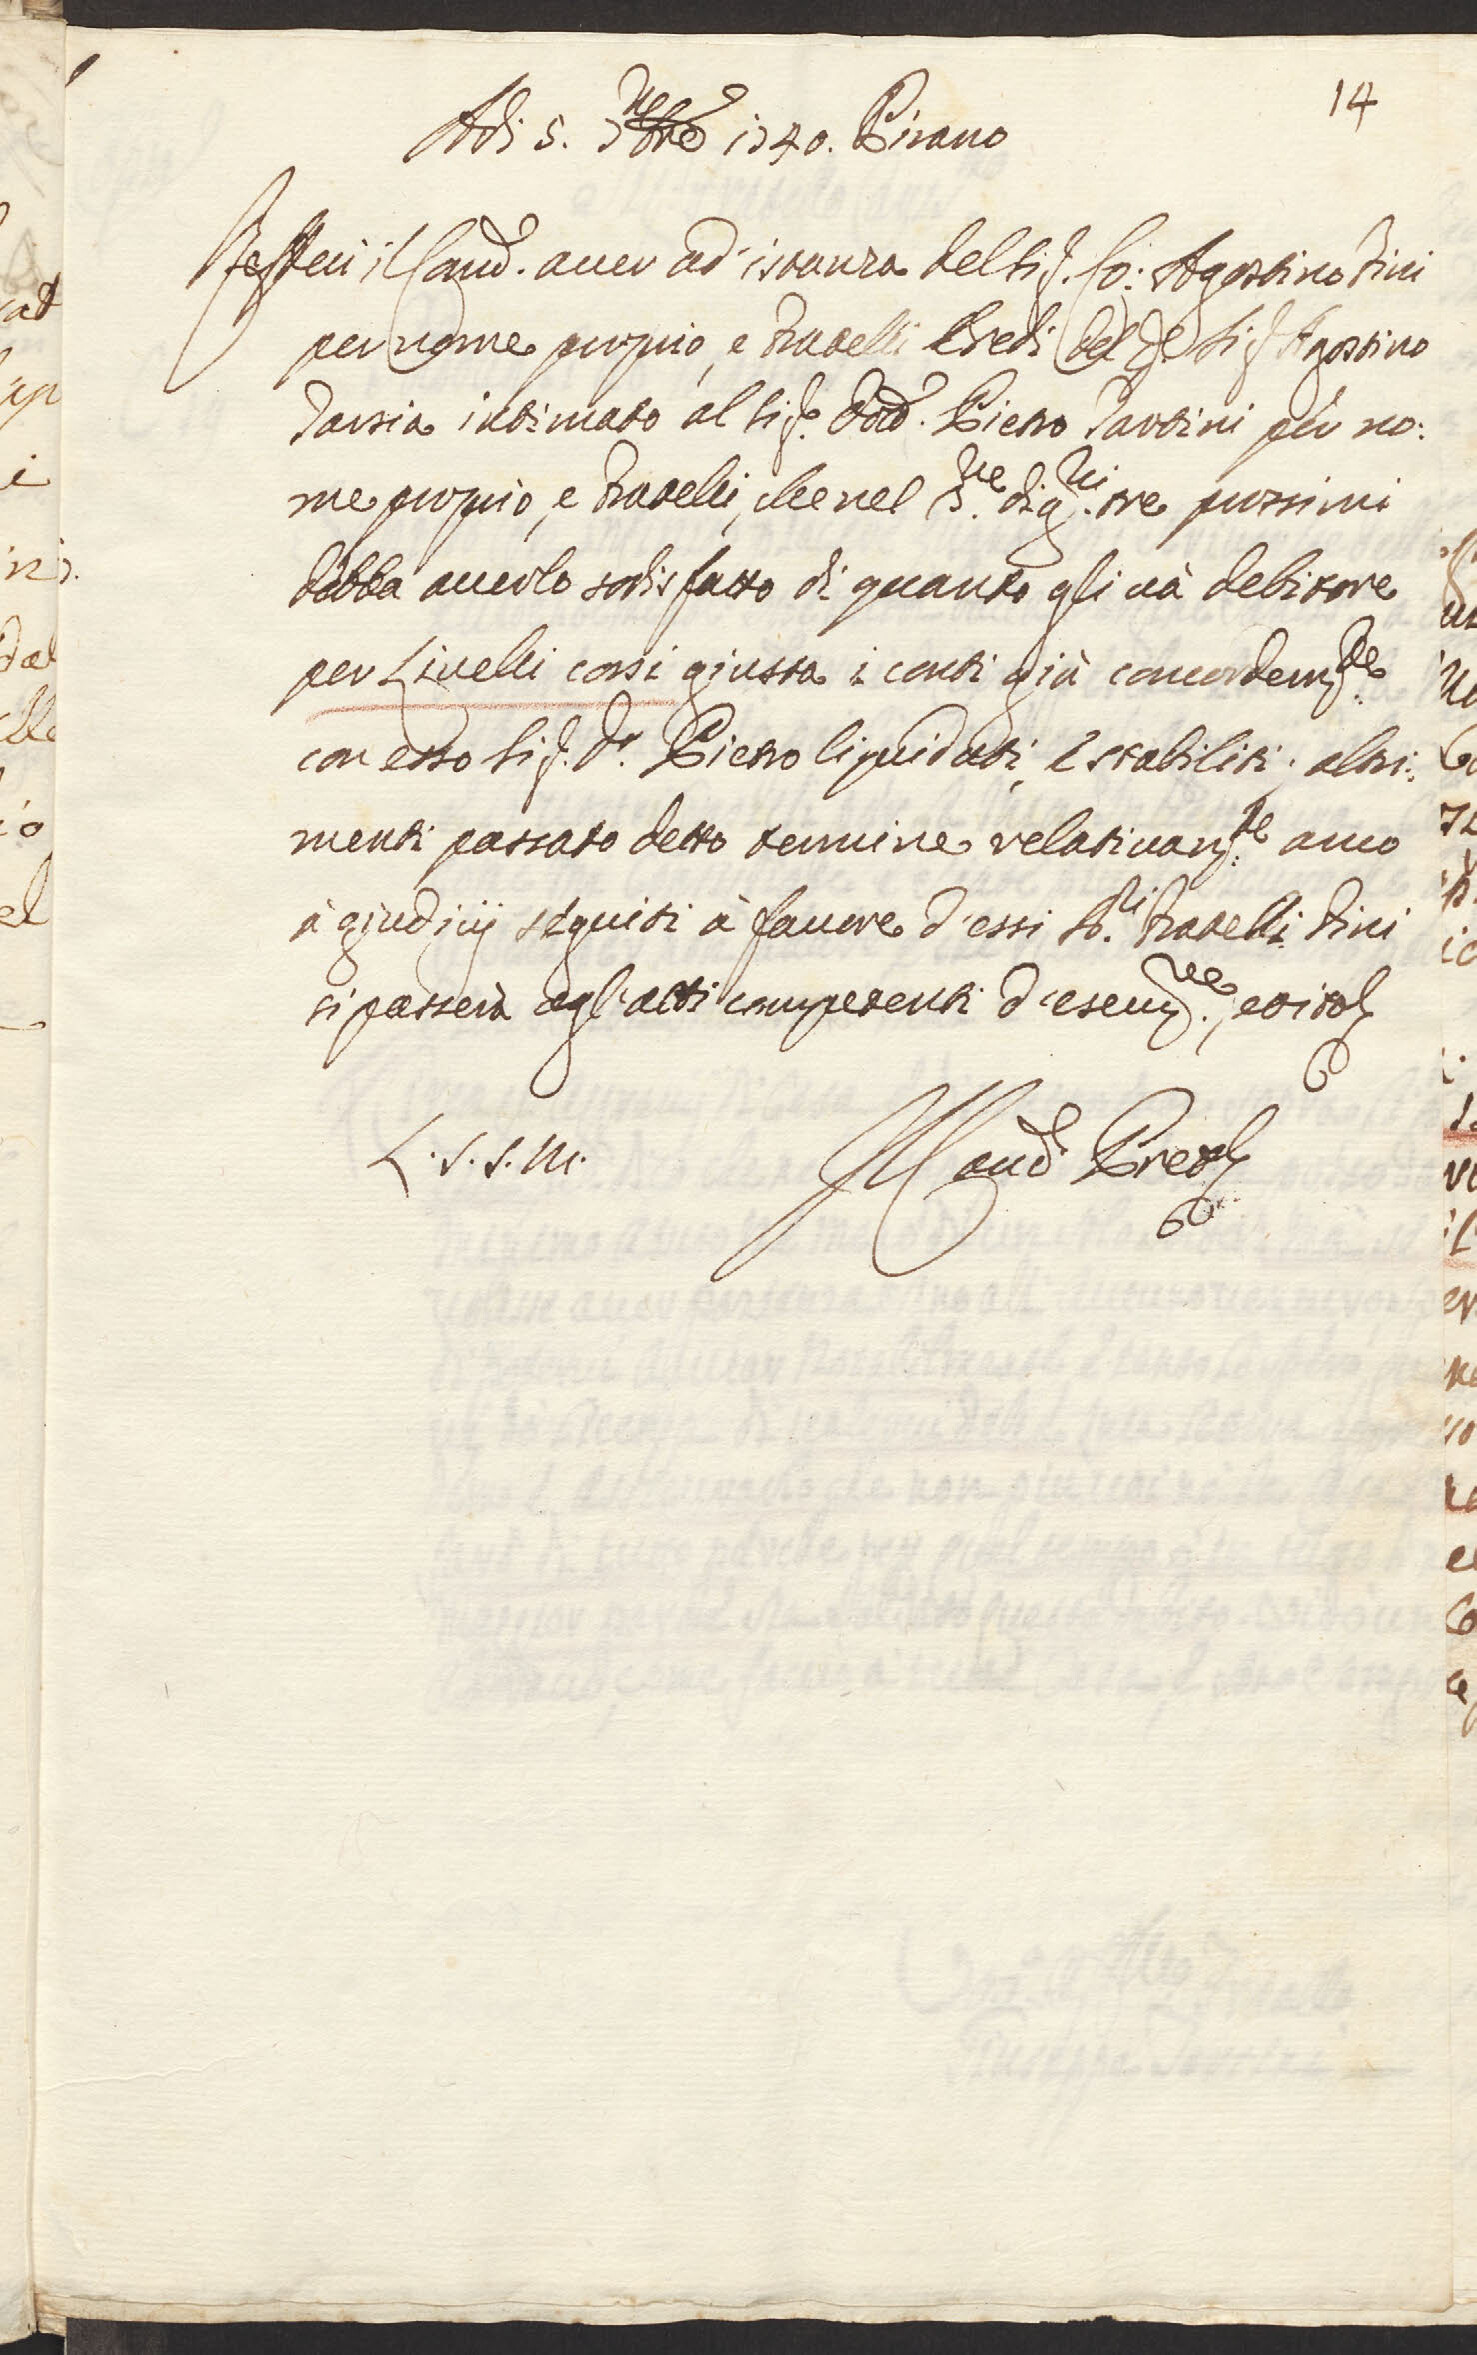 14
Adi 5. 1740. Pirano
Refferì il Cand. auer ad' istanza del Sig.r Co: Agostino Fini
per nome proprio, e Fratelli Eredi del q. Sig.r Agostino
Tarsia intimato al Sig.r Dotd. Pietro Tartini per no:
me proprio, e Fratelli, che nel di g.ni tre prossimi
debba auerlo sodisfatto di quanto gli uà debitore
per Liuelli corsi giusta i conti già concordem.te
con esso Sig.r D.r Pietro liquidati, e stabiliti; altri:
menti passato detto termine relatiuam.te anco
à giudicij seguiti à fauore d'essi SS.ri Fratelli Fini
si passerà agl'atti competenti d'esecuz.ne,
L. S. S. M.
Il Cand. Pret.